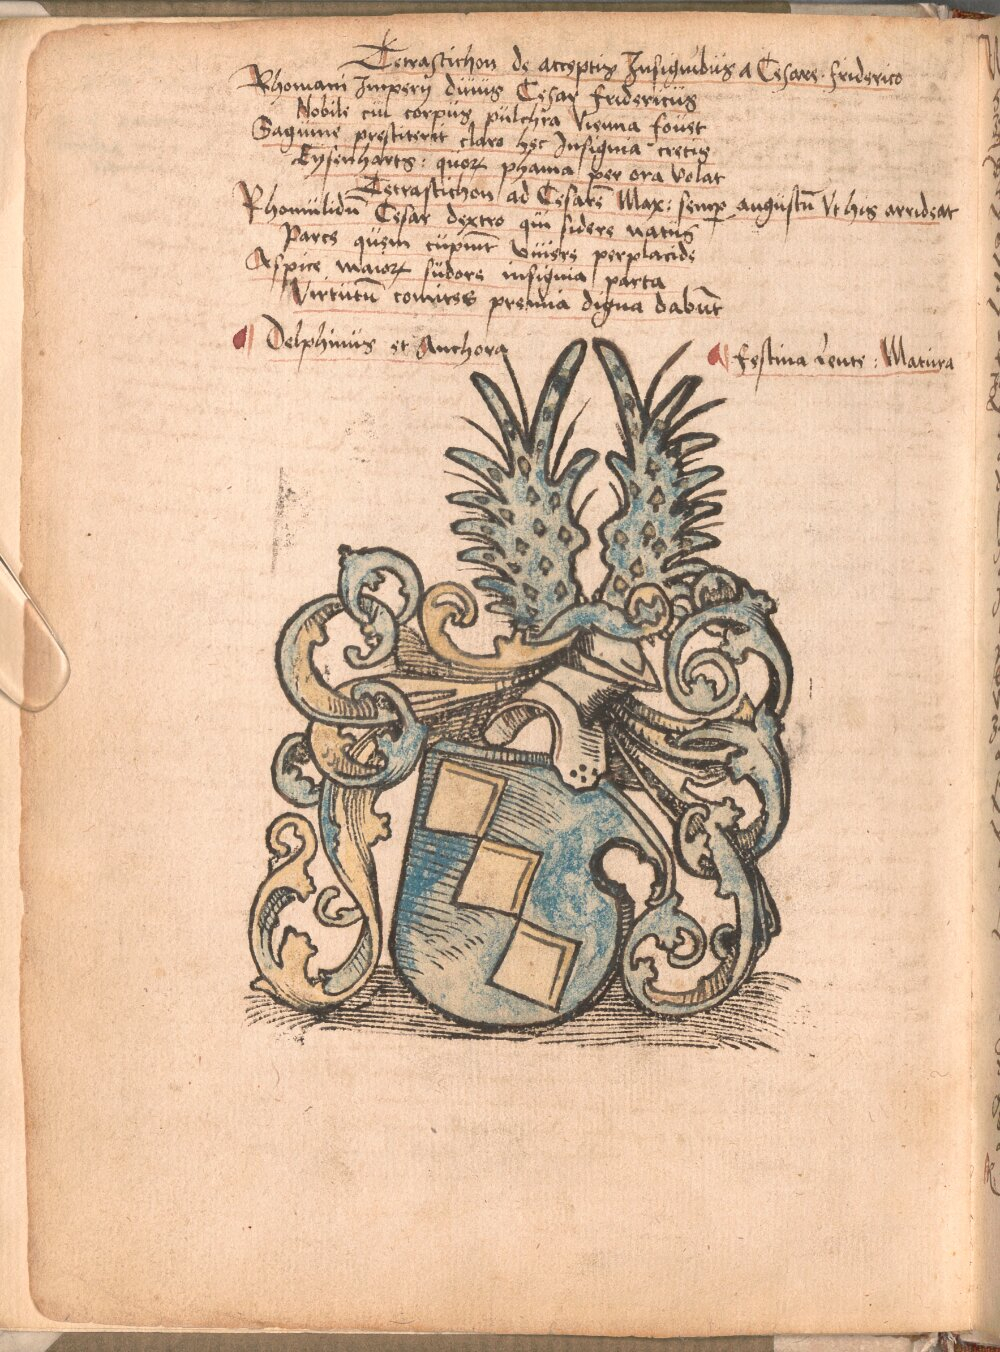 Tetrastichon de acceptis Insignibus a Cesare friderico
Rhomani Imperij diuus Cesar fridericus
Nobile cui corpus pulchra Vienna fouet
Saguine prestiterit claro hec Insignia cretis
Eysenharts: quorꝝ phama per ora volat
Tetrastichon ad Cesarē Max: semꝑ augustū Vt his arrideat
Rhomulidū Cesar dextro qui sidere natus
Parce quem cupiūt viuere perplacide
Aspice maiorꝝ sudore insignia parta
Virtutū comites premia digna dabūt
Delphinus et Anchora
festina lente: Matura